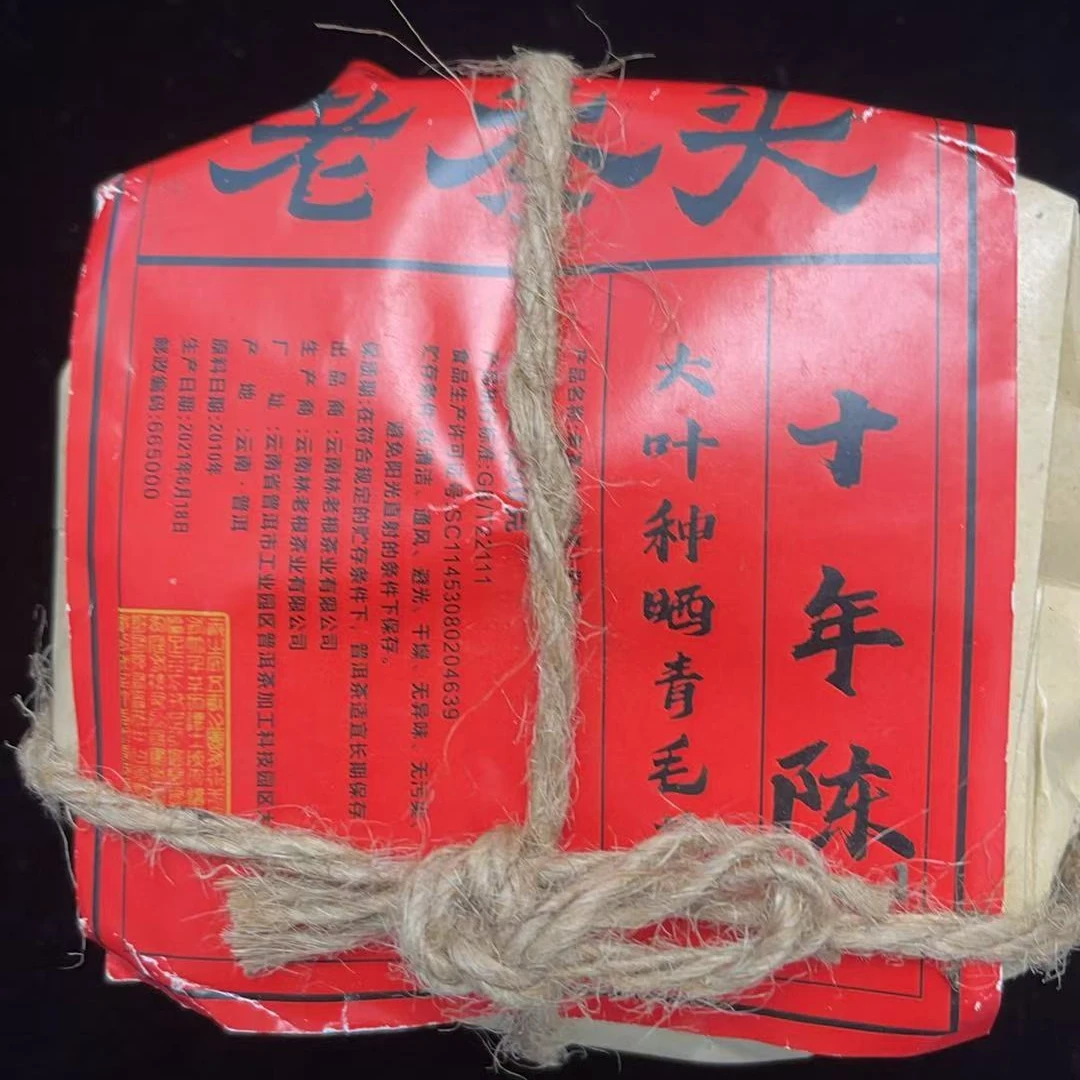 老茶头
十年陈
大叶种晒青毛
产品名称:
GB/T22111
食品生产许可证号:SC11453080204639
贮存条件:在清洁、通风、避光、干燥、无异味、无污染、
避免阳光直射的条件下保存。
保质期:在符合规定的贮存条件下,普洱茶适宜长期保存
出品商:云南林老根茶业有限公司
生产商:云南林老根茶业有限公司
厂址:云南省普洱市工业园区普洱茶加工科技园区
产地:云南·普洱
原料日期:2010年
生产日期:2021年6月18日
邮政编码:665000